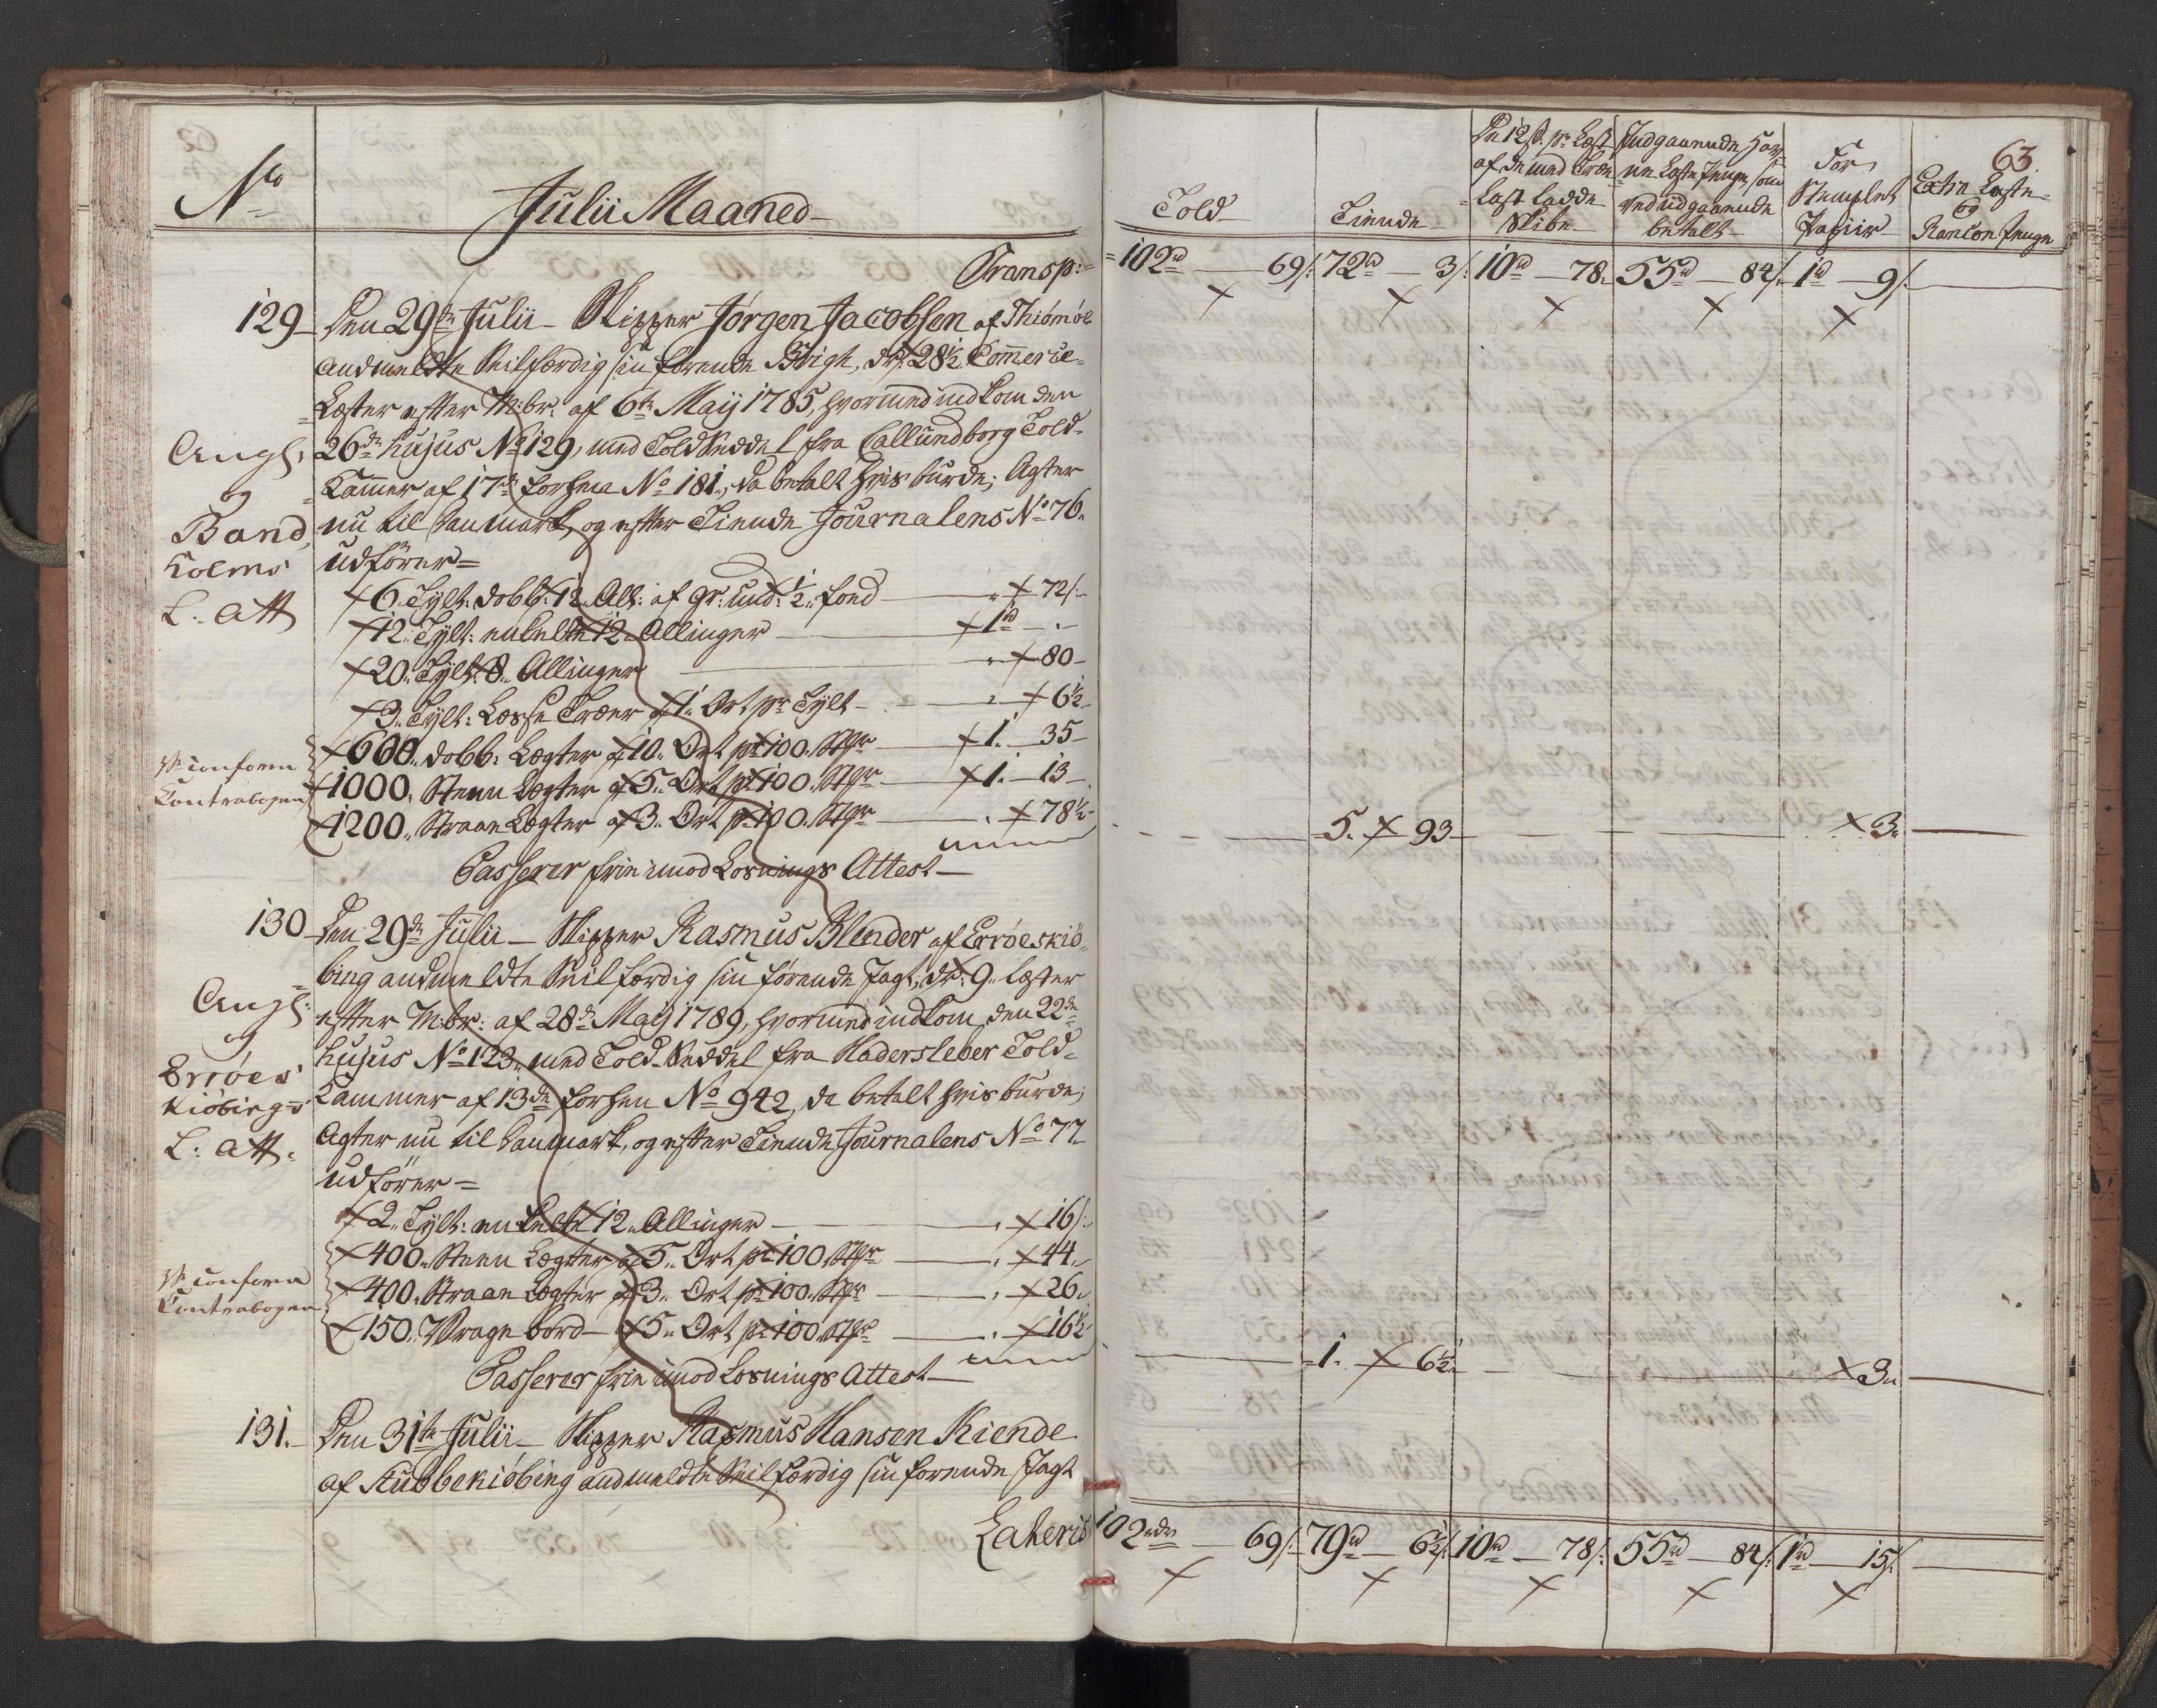 No
Julii Maaned
Transp:
129 Den 29de Julii Skipper Jørgen Jacobsen af Thiømøe
andmeldte Seilfærdig sin førende Brigt, dr: 28½ Commerce
Læster efter M:br: af 6te Maij 1785, hvormed indkom den
26de hujus No 129, med Toldseddel fra Callundborg Told
Kammer af 17de forhen No 181, da betalt hvis burde; Agter
nu til Danmark, og efter Tiende Journalens No 76
udfører
Angf:
og
Band
holms
L: Att
6 Tylt: dobb: 12 All: af gr: und: ½ fond 72/:
12 Tylt: enkelte 12 Allinger 1rd
20 Tylt: 8 Allinger 80
3 Tylt: Losse Træer af 1 Ort pr Tylt 6½
600 dobb: Lægter af 10 Ort pr 100 Stkr 1. 35
1000 Steen Lægter af 5 Ort pr 100 Stkr 1. 13
1200 Straae Lægter af 3 Ort pr 100 Stkr 78½
conform
Contrabogen
Passerer frie imod Losnings Attest
130 Den 29de Julii Skipper Rasmus Blender af Errøeskiø
bing andmeldte Seilfærdig sin førende Jagt, dr: 9 Læster
efter M:br: af 28de Maij 1789, hvormed indkom den 22de
hujus No 123 med Told-Seddel fra Hadersleber Told
Kammer af 13de forhen No 942, da betalt hvis burde;
Agter nu til Danmark, og efter Tiende Journalens No 77
udfører
Angf:
og
Errøes
Kiøbings
L: Att:
2 Tylt: enkelte 12 Allinger 16/:
400 Steen Lægter af 5 Ort pr 100 Stkr 44
400 Straae Lægter af 3 Ort pr 100 Stkr 26
150 Vrage bord af 5 Ort pr 100 Stkr 16½
conform
Contrabogen
Passerer frie imod Losnings Attest
131. Den 31te Julii Skipper Rasmus Hansen Kiende
af Stubbekiøbing andmeldte Seilfærdig sin førende Jagt
Lateris
63
Told
Tiende
De 12 s. pr Læst af de med Træ Last ladde Skibe
Indgaaende Hav ne Laste Penge, som ved udgaaende betalt
For Stemplet Papiir
Extra Laste og Rancon Penge
102rd 69/: 72rd 3/: 10rd 78 55rd 84/: 1rd 9/:
5. 93 3
1. 6½ 3
102rdr 69/: 79rd 6½/: 10rd 78/: 55rd 84/: 1rd 15/: